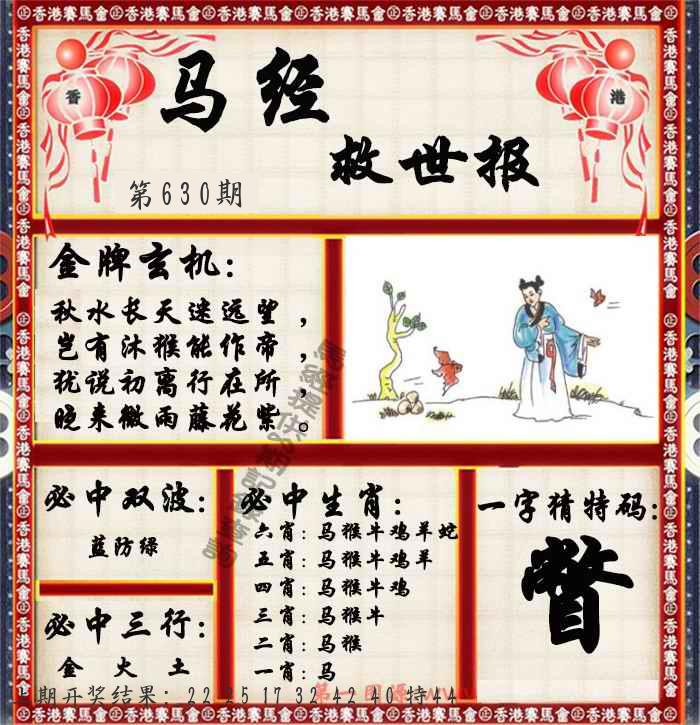 香 港
马经
救世报
第630期
金牌玄机:
秋水长天迷远望,
岂有沐猴能作帝,
犹说初离行在所,
晚来微雨藤花紫。
必中双波:
蓝防绿
必中三行:
金 火 土
必中生肖:
六肖:马猴牛鸡羊蛇
五肖:马猴牛鸡羊
四肖:马猴牛鸡
三肖:马猴牛
二肖:马猴
一肖:马
一字猜特码:
瞥
期开奖结果: 22 25 17 32 42 40 特44
香港赛马會